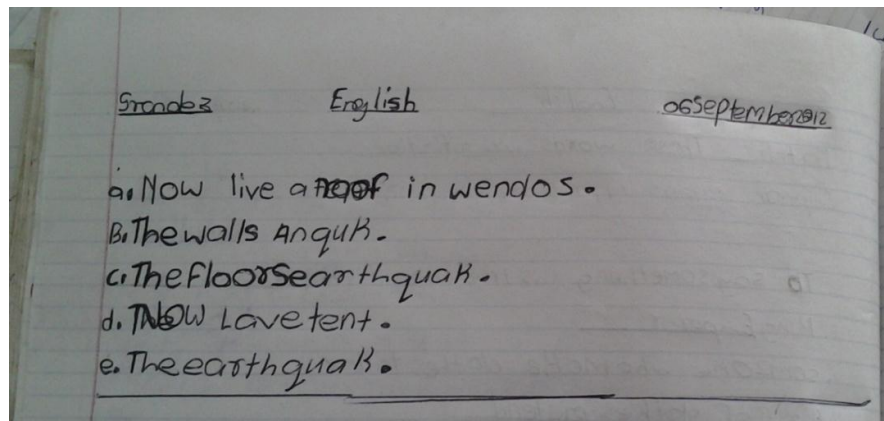 Grade 3 English 06 September 2012
a. Now live a roof in wendos.
B. The walls Anquk.
c. The floors earthquak.
d. Now Lave tent.
e. The earthquak.